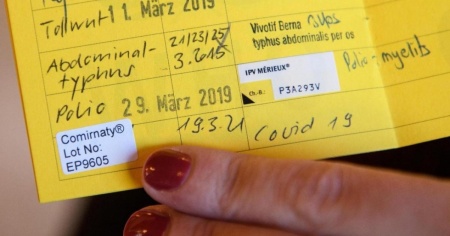 Tollwut 11. März 2019
Abdominal-
typhus
21/23/25
3.2015
Vivotif Berna 3 Ups
typhus abdominalis per os
Polio 29. März 2019
IPV MÉRIEUX®
Ch.-B.: P3A293V
Polio-myelitis
Comirnaty®
Lot No:
EP9605
19.3.21 Covid 19